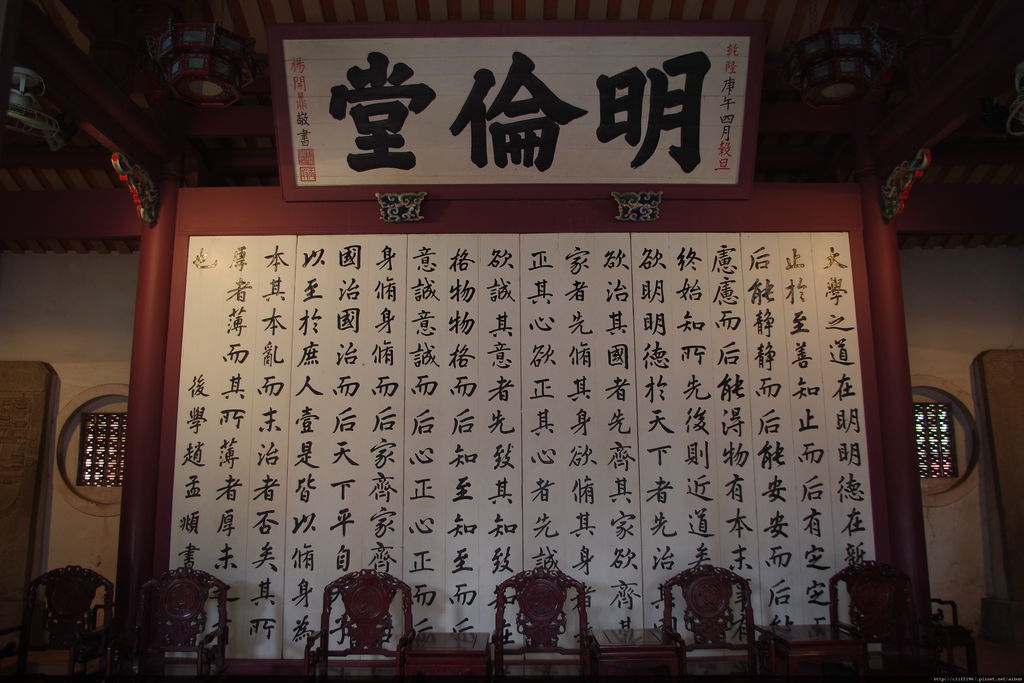 乾隆庚午四月穀旦
明倫堂
楊開鼎敬書
大學之道在明明德在新
止於至善知止而后有定定
后能静静而后能安安而后
慮慮而后能得物有本末事有
終始知所先後則近道矣
欲明明德於天下者先治其
欲治其國者先齊其家欲齊其
家者先脩其身欲脩其身者
正其心欲正其心者先誠
欲誠其意者先致其知致在
格物物格而后知至知至而后
意誠意誠而后心正心正而
身脩身脩而后家齊家齊
國治國治而后天下平自天子
以至於庶人壹是皆以脩身為
本其本亂而末治者否矣其所
厚者薄而其所薄者厚未之
也
後學趙孟頫書